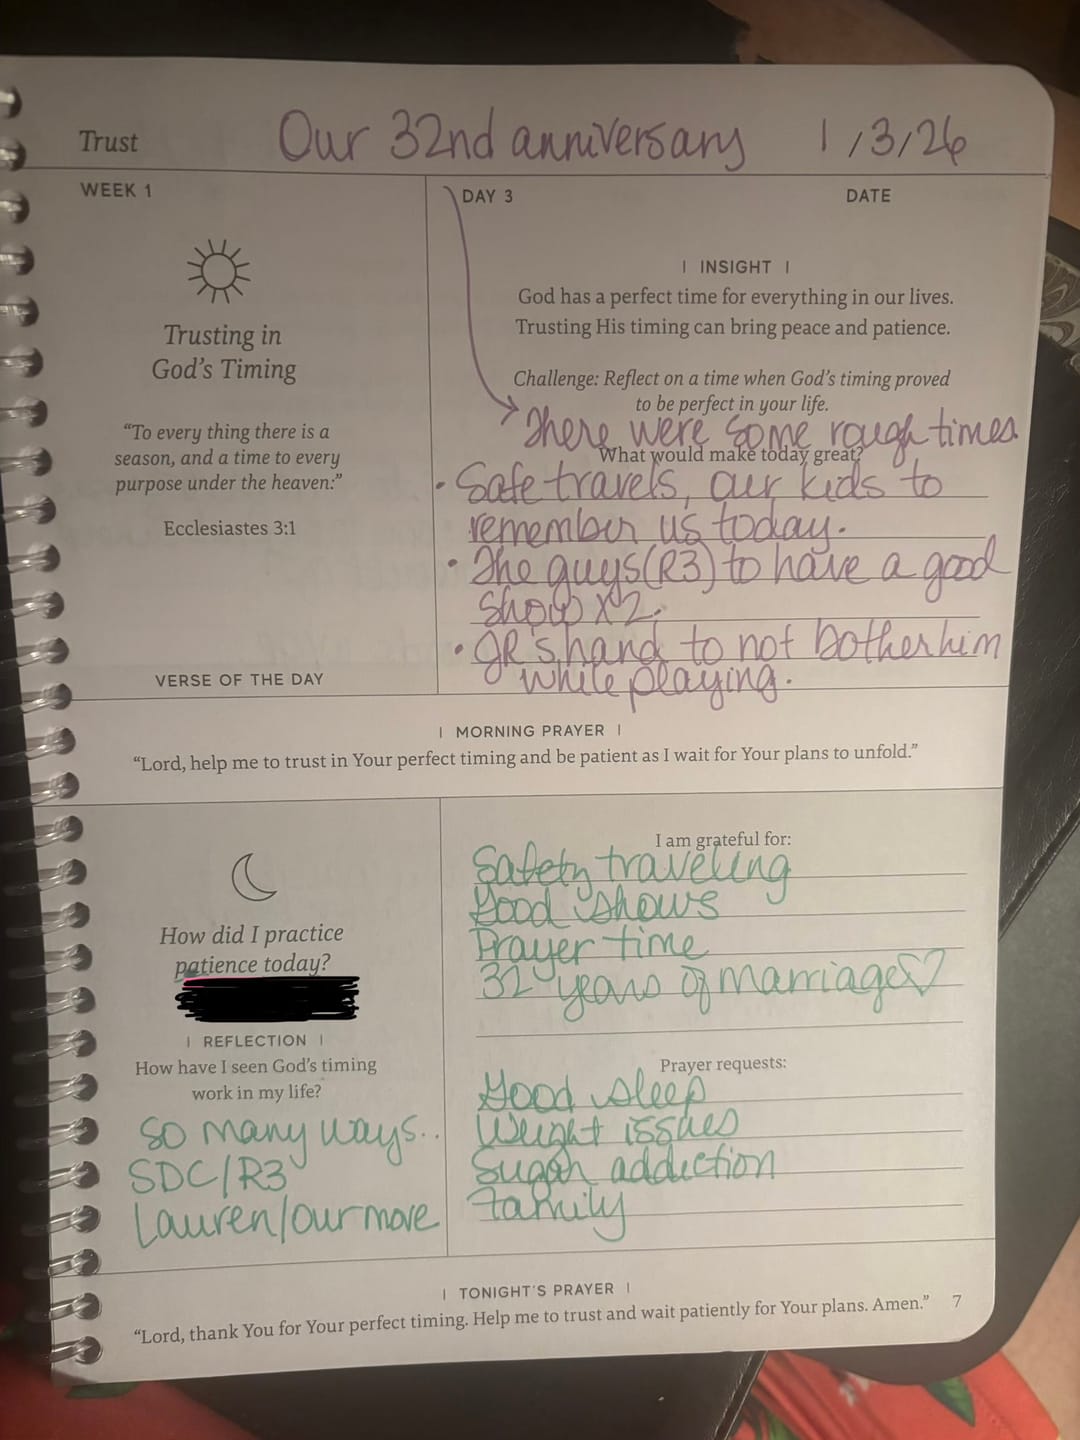 Trust
Our 32nd anniversary
1/3/26
WEEK 1
DAY 3
DATE
Trusting in
God's Timing
"To every thing there is a
season, and a time to every
purpose under the heaven:"
Ecclesiastes 3:1
VERSE OF THE DAY
| INSIGHT |
God has a perfect time for everything in our lives.
Trusting His timing can bring peace and patience.
Challenge: Reflect on a time when God's timing proved
to be perfect in your life.
There were some rough times.
What would make today great?
• Safe travels, our kids to
remember us today.
• The guys(R3) to have a good
show x2.
• JR's hand to not bother him
while playing.
| MORNING PRAYER |
"Lord, help me to trust in Your perfect timing and be patient as I wait for Your plans to unfold."
How did I practice
patience today?
| REFLECTION |
How have I seen God's timing
work in my life?
So many ways..
SDC/R3
Lauren/our move
I am grateful for:
Safety traveling
Good shows
Prayer time
32 years of marriage♡
Prayer requests:
Good sleep
Weight issues
Sugar addiction
Family
| TONIGHT'S PRAYER |
"Lord, thank You for Your perfect timing. Help me to trust and wait patiently for Your plans. Amen."
7